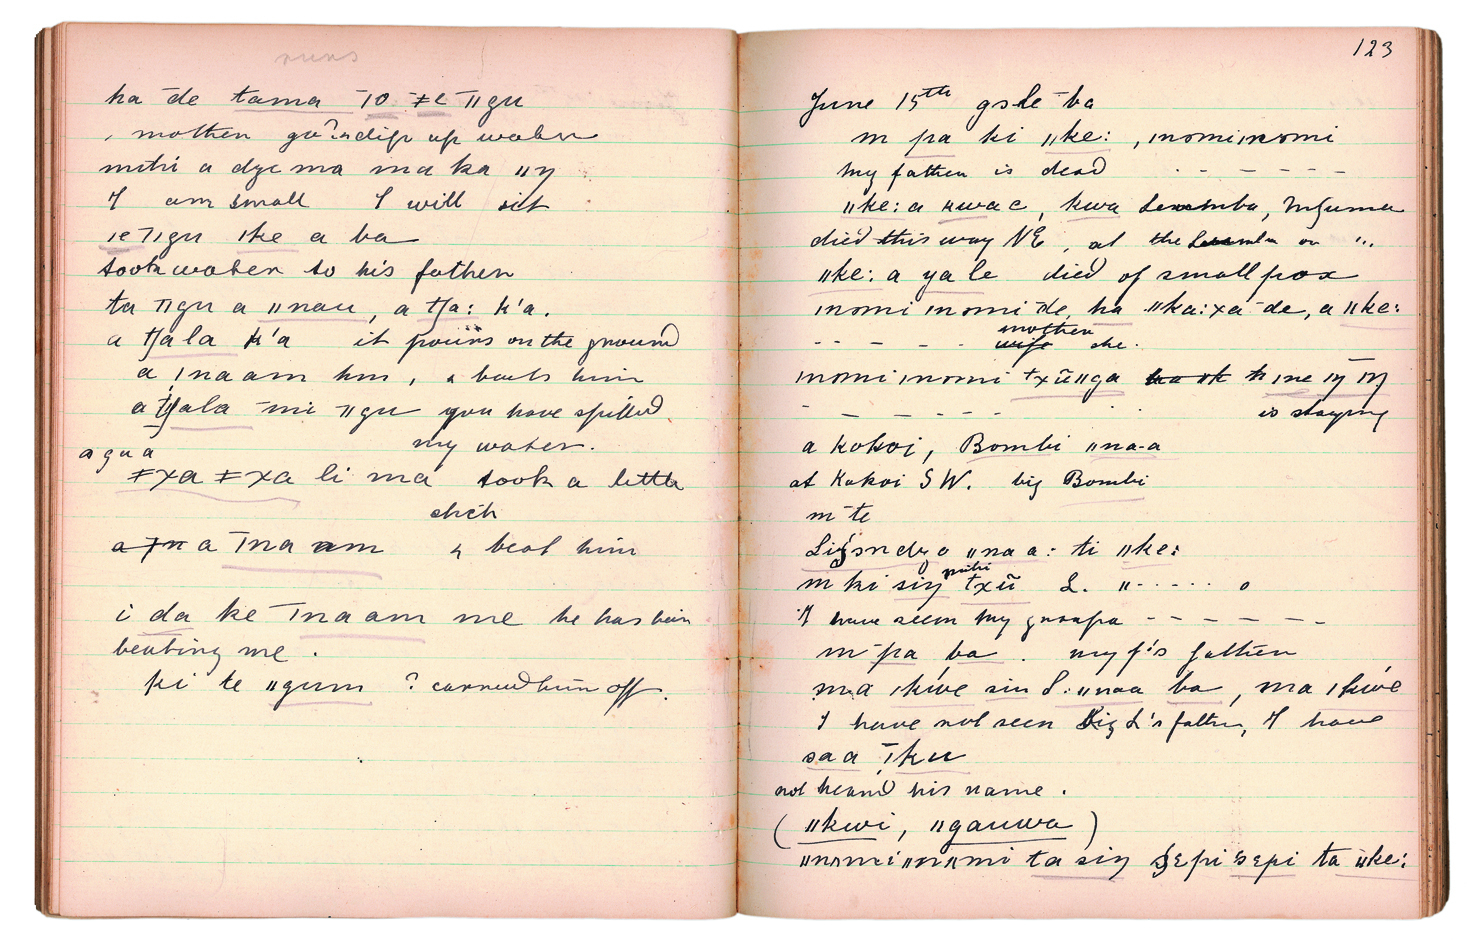 runs
ha ̄de tama ̄ıo ǂe ̄ıı gu
, mother go? dip up water
mtsi a dye ma ma ka ıı ŋ
I am small I will sit
ıe ̄ıı gu ıke a ba
took water to his father
ta ̄ıı gu a ıı nau, a tʃa: k'a.
a tʃala k'a it pours on the ground
a ınaam hm, & beats him
a tʃala ̄mi ıı gu you have spilled
my water.
a gua
ǂxa ǂxa li ma took a little
stick
a ̄ına am & beat him
i da ke ̄ınaam me he has been
beating me.
ki te ıı gum ? carried him off.
123
June 15th
m pa ki ıı ke: , ınomiınomi
my father is dead - - - - - -
ıı ke: a ııwa c, kwa
died this way NE, at the on "..
ıı ke: a ya le died of small pox
ınomi ınomi ̄de, ha ıı ka:xa ̄de, a ıı ke:
mother
- - - - wife she.
ınomi ınomi ǂxũıı ga ıne ıŋ ̄ıŋ
- - - - - - is staying
a kokoi, Bombi ıı na-a
at Kokoi SW. big Bombi
m ̄te
ıı na a: ti ıı ke:
m ki siŋ txũ L. ıı - - - - o
I have seen my granpa - - - - - -
m ̄pa ba . my f's father
ma ıkwe sin L. ıı naa ba, ma ıkwe
I have not seen Big L's father, I have
sa a ̄ı ku
not heard his name.
( ıı kwi, ıı gauwa )
ıınomi ıınomi ta siŋ sɛpi sɛpi ta ıı ke: